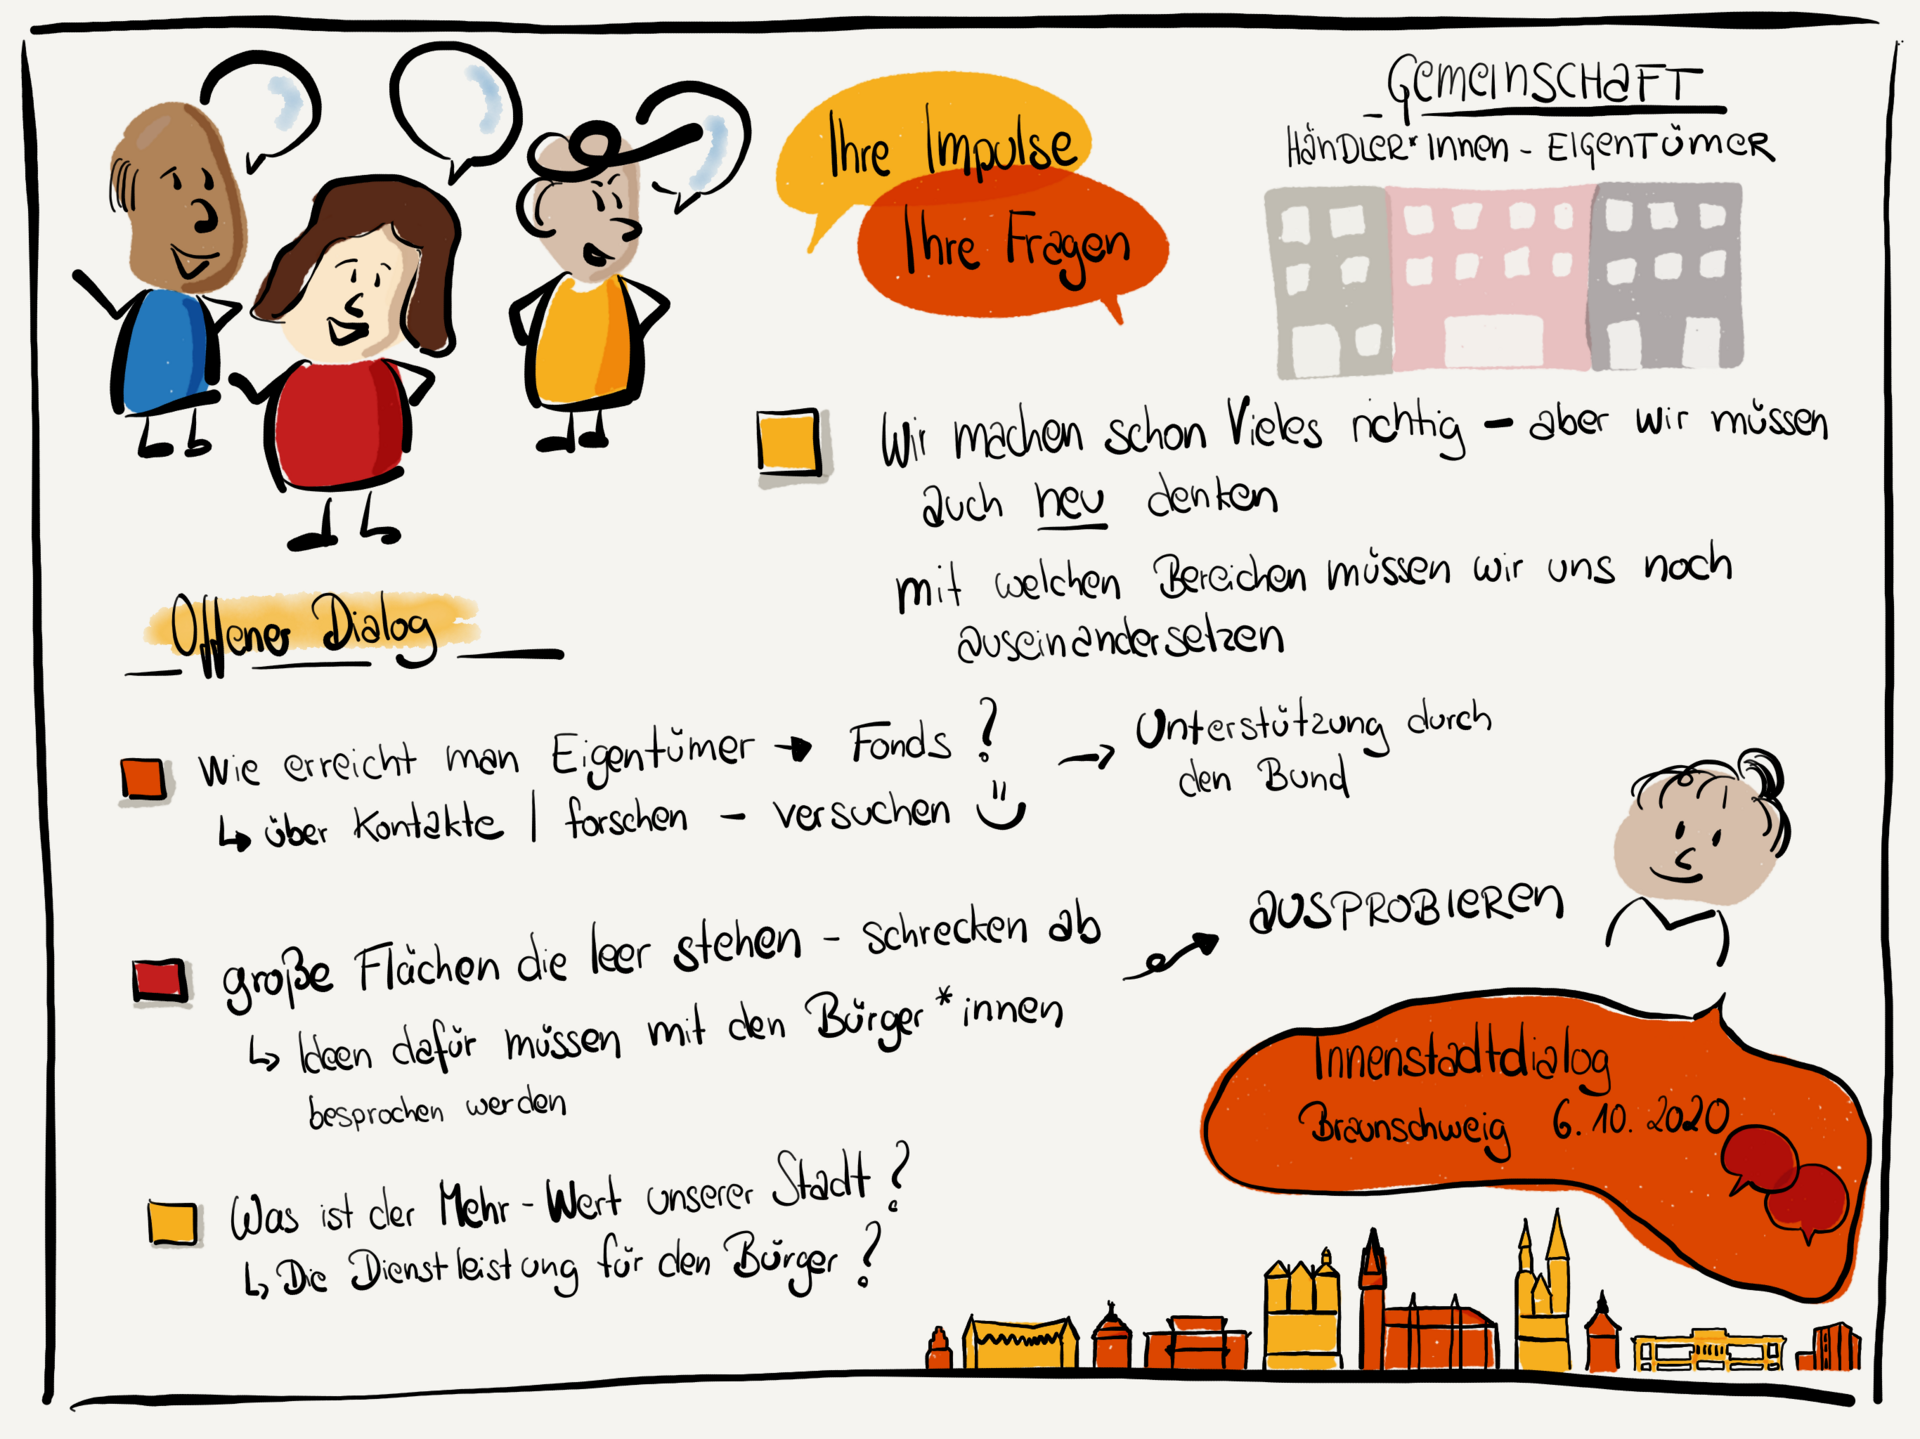 Ihre Impulse
Ihre Fragen
GemeinSCHaFT
HänDLeR*innen - EIgenTümeR
Wir machen schon Vieles richtig - aber wir müssen
auch neu denken
mit welchen Bereichen müssen wir uns noch
auseinandersetzen
Offener Dialog
Wie erreicht man Eigentümer → Fonds?
→ Unterstützung durch
den Bund
↳ über Kontakte | forschen - versuchen
große Flächen die leer stehen - schrecken ab
→ aUSPROBIeRen
↳ Ideen dafür müssen mit den Bürger*innen
besprochen werden
Was ist der Mehr-Wert unserer Stadt?
↳ Die Dienstleistung für den Bürger?
Innenstadtdialog
Braunschweig 6.10.2020